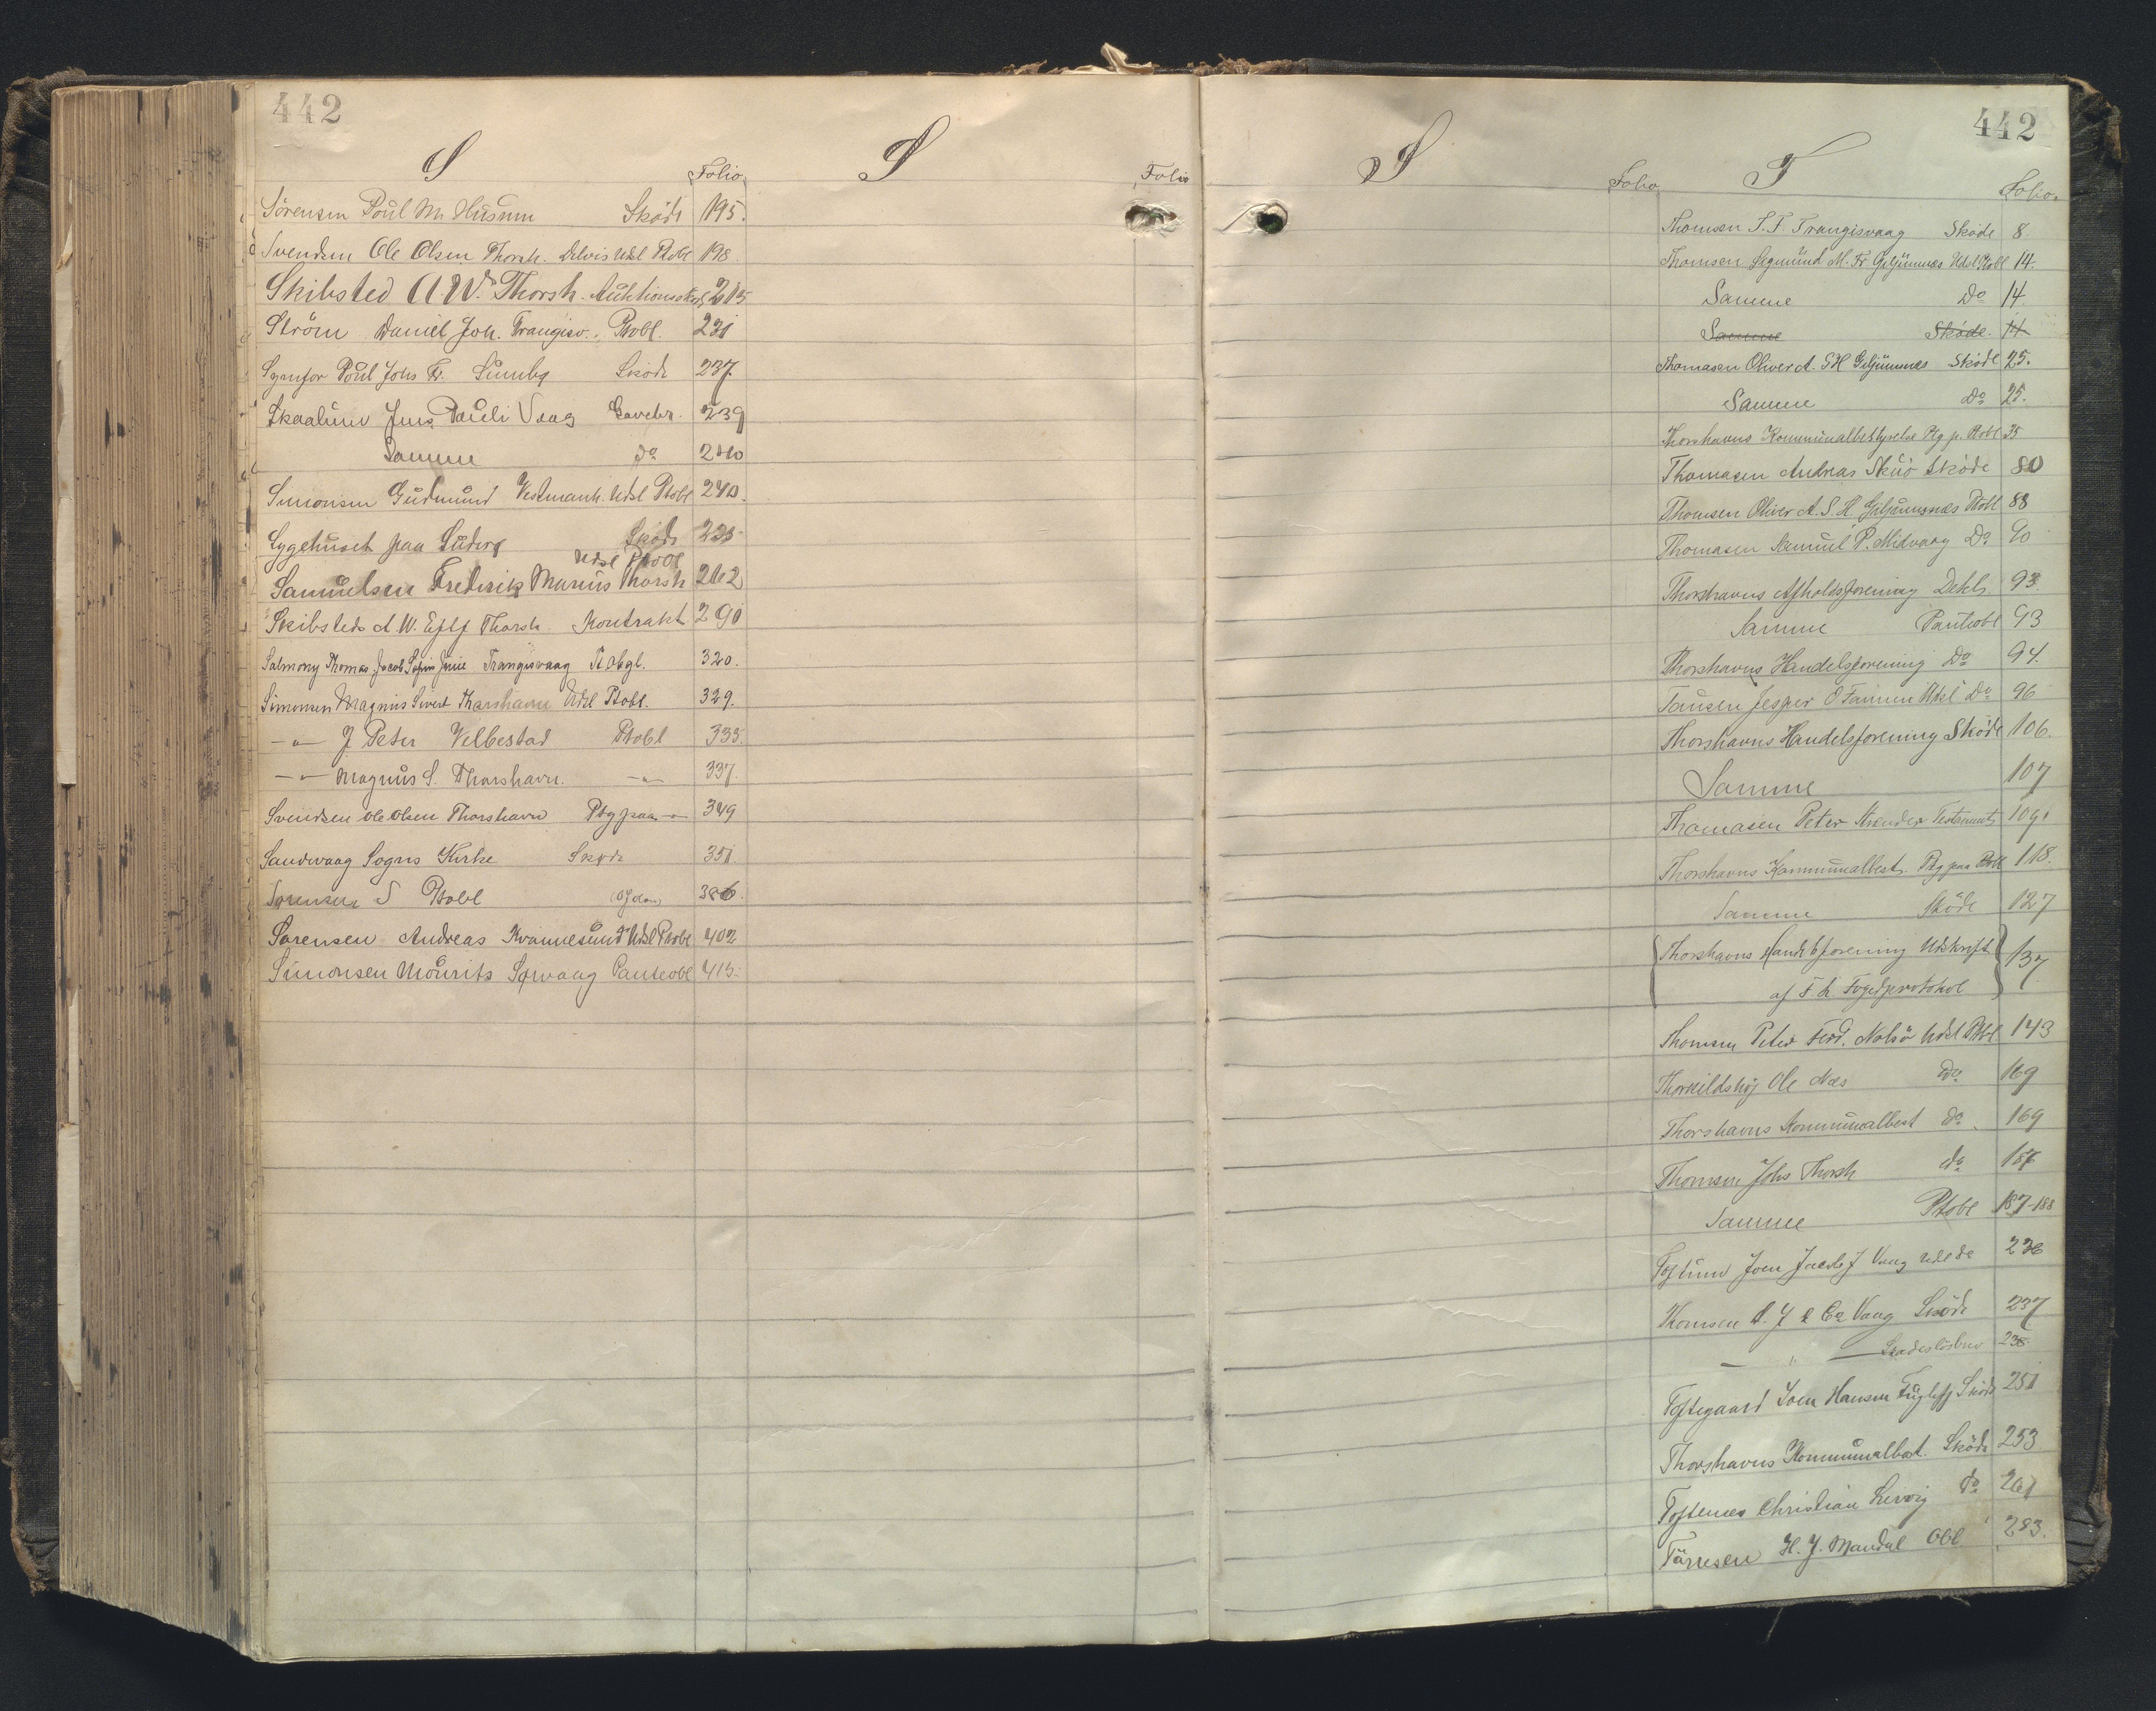 442
S
Folio
Sörensen Poul M. Husum Sköde 195.
Svendsen Ole Olsen Thorsh. Delvis Udsl Ptobl 198
Skibsted A. W. Thorsh. Auktionssk 215
Ström Daniel Joh. Trangisv. Ptobl. 231
Poul Johs Fr. Sumbø Sköde 237.
Skaalum Jens Pauli Vaag Gavebr. 239
Samme do 240
Simonsen Gudmund Vestmanh. Udsl Ptobl 240.
Sygehuset paa Suderø Sköde 255
Udsl Ptobl
Samuelsen Frederik Marius Thorsh 262
Skibsteds A. W. Eftf Thorsh. Kontrakt 290
Salmony Thomas Jacob Trangisvaag 320.
Simonsen Magnus Sivert Thorshavn Udsl Ptobl. 329.
-"- J. Peter Velbestad Ptobl 335.
-"- Magnus S. Thorshavn. -"- 337.
Svendsen Ole Olsen Thorshavn Ptg paa -"- 349
Sandvaag Sogns Kirke Sköde 351.
Sørensen S Ptobl 386.
Sørensen Andreas Kvannesund Udsl Ptobl 402
Simonsen Mourits Sørvaag Panteobl 415.
S
Folio
442
S
Folio
T
Folio.
Thomsen T. F. Trangisvaag Sköde 8
Thomsen Sigmund M. Fr Gjljumnæs Udsl Ptobl 14.
Samme Do 14
Samme Sköde. 14
Thomasen Oliver A. S H Gjljumnæs Sköde 25.
Samme Do 25.
Thorshavns Kommunalbestyrelse Ptg p. Ptobl 35
Thomasen Andreas Skuö Sköde 80
Thomsen Oliver A. S. H. Gjljumnæs Ptobl 88
Thomasen Samuel P. Midvaag Do 90
Thorshavns Afholdsforening Dekl. 93.
Samme Panteobl 93
Thorshavns Handelsforening Do 94.
Tausen Jesper O Famien Udsl Do 96
Thorshavns Handelsforening Sköde 106.
Samme 107
Thomasen Peter Strender Testament 109
Thorshavns Kommunalbest. Ptg paa Ptobl 118.
Samme Sköde 127
Thorshavns Handelsforening Udskrift
af Fogedprotokol 137
Thomsen Peter Ferd. Nolsö Udsl Ptobl 143
Thorkildshøj Ole Næs Do 169
Thorshavns Kommunalbest do. 169
Thomsen Johs Thorsh do 187
Samme Ptobl 187-188
Toftum Joen Jacob J Vaag Udsl do 236
Thomsen D. J & Co Vaag Sköde 237
— " — Skadeslösbrev 238
Toftegaard Joen Hansen Fuglefj Sköde 251
Thorshavns Kommunalbest. Sköde 253
Toftenæs Christian Lervig do 261
Tørresen H. J. Mandal Obl 283.